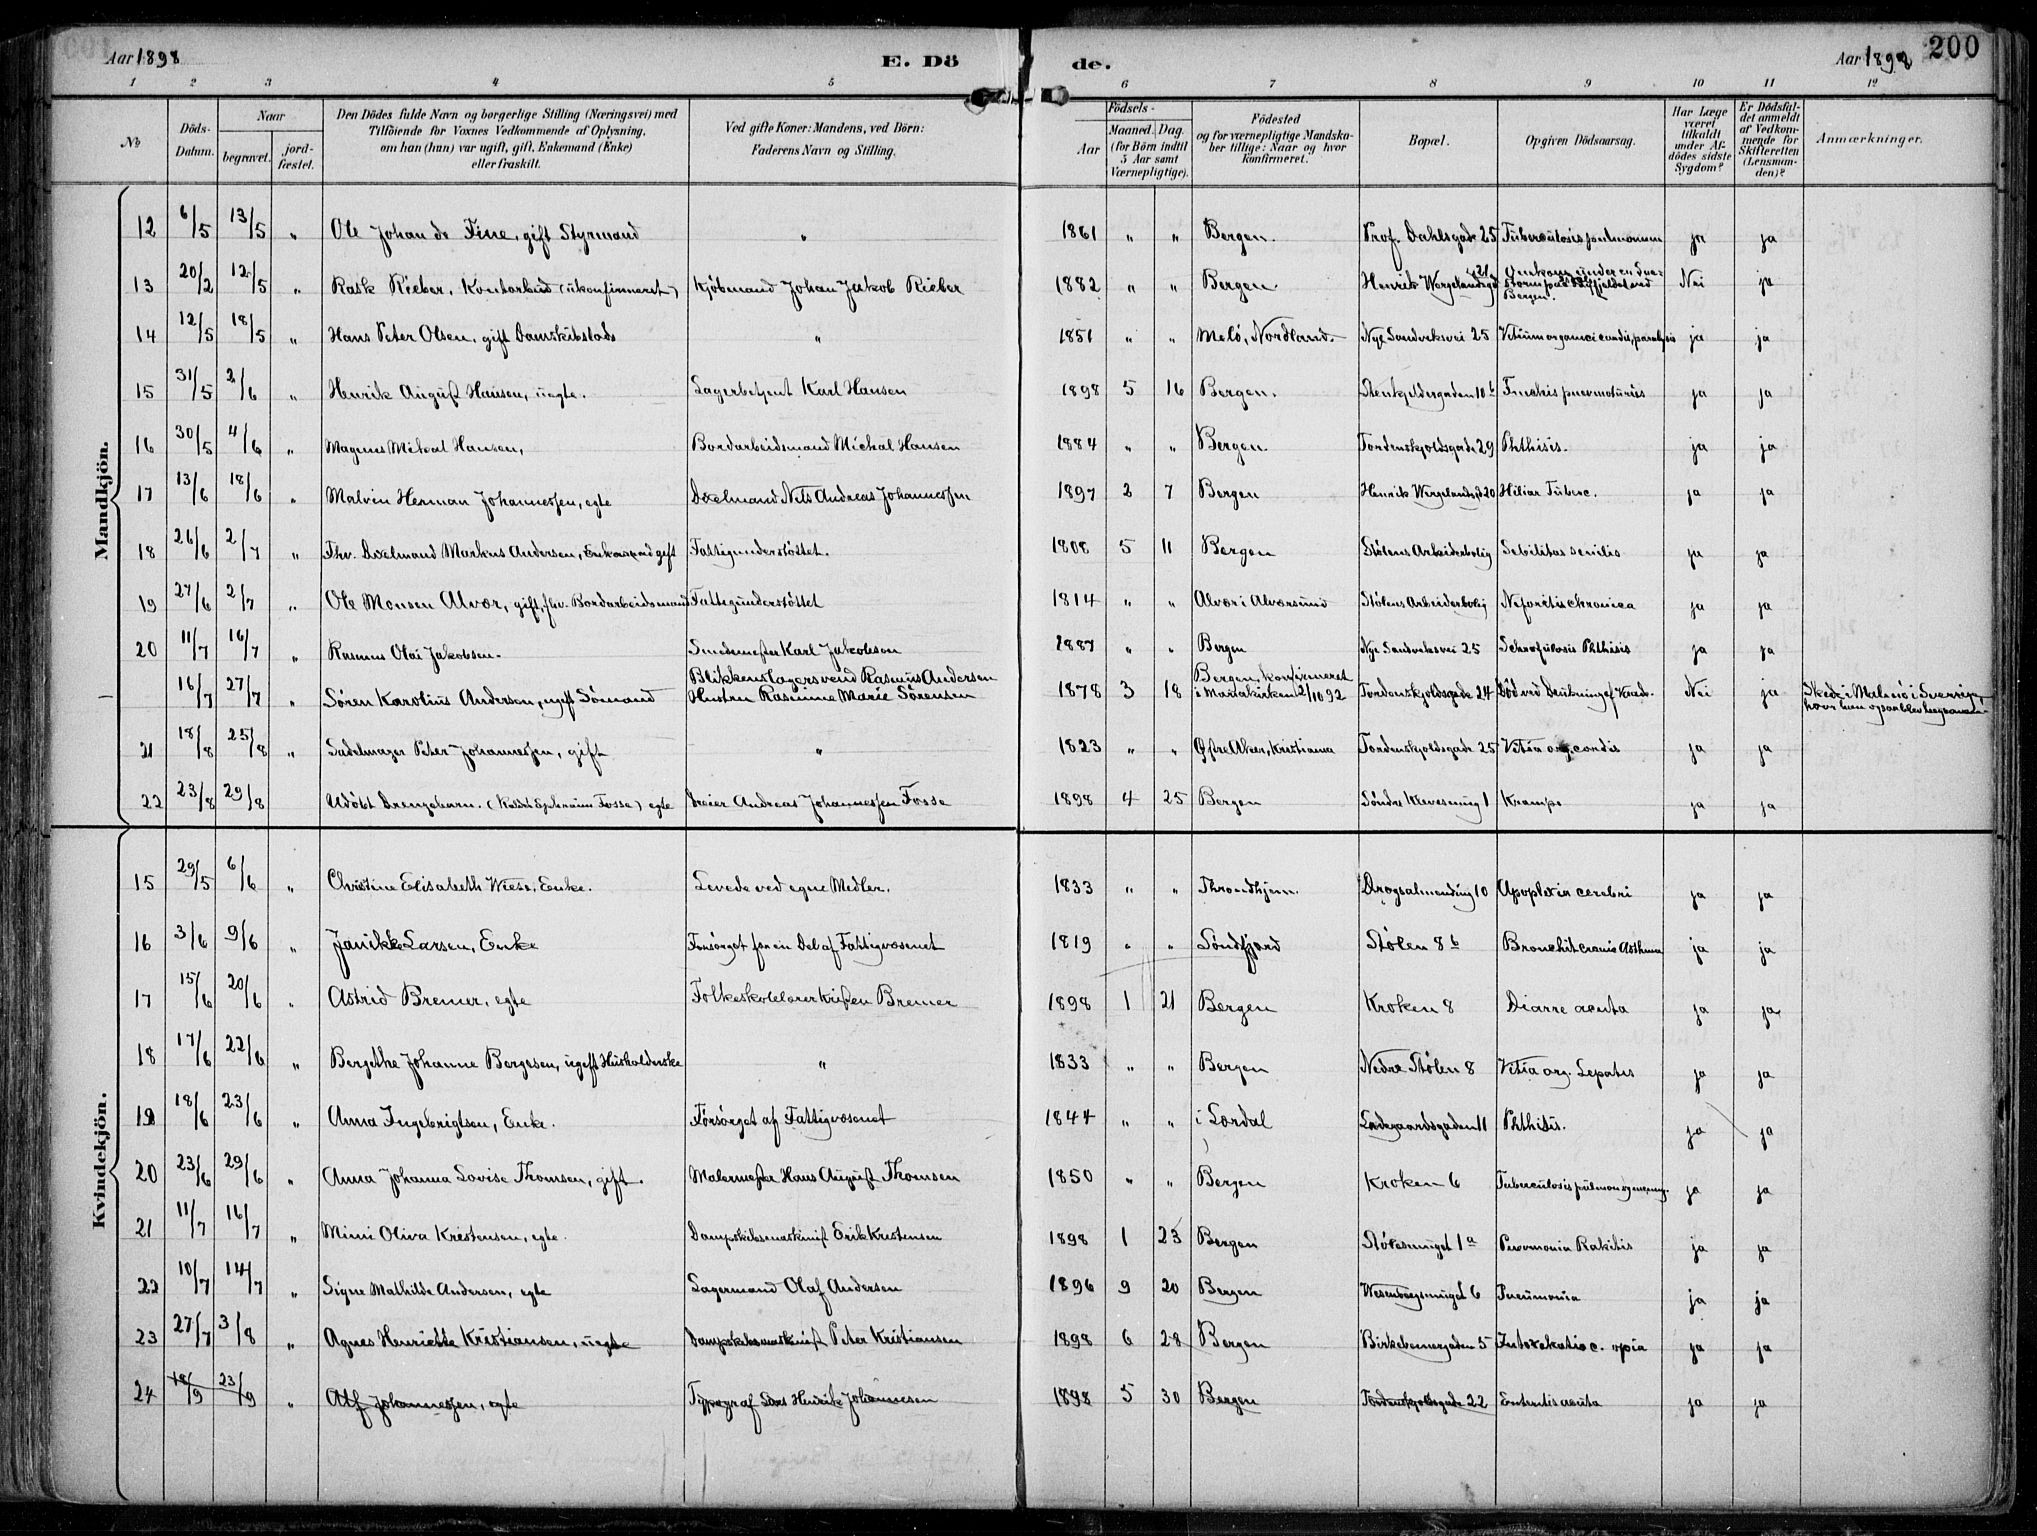 Aar 1898 E. Dö de. Aar 1898 200
1 2 3 4 5 6 7 8 9 10 11 12
№
Döds-Datum.
Naar
begravet.
jord-fæstet.
Den Dödes fulde Navn og borgerlige Stilling (Næringsvei) med
Tilföiende for Voxnes Vedkommende af Oplysning,
om han (hun) var ugift, gift, Enkemand (Enke)
eller fraskilt.
Ved gifte Koner: Mandens, ved Börn:
Faderens Navn og Stilling.
Födsels-
Aar
Maaned. Dag.
(for Börn indtil
5 Aar samt
Værnepligtige).
Födested
og for værnepligtige Mandska-
ber tillige: Naar og hvor
konfirmeret.
Bopæl.
Opgiven Dödsaarsag.
Har Læge
været
tilkaldt
under Af-
dödes sidste
Sygdom?
Er Dödsfal-
det anmeldt
af Vedkom-
mende for
Skifteretten
(Lensman-
den)?
Anmærkninger.
Mandkjön.
12 6/5 13/5 " Ole Johan de Fine, gift Styrmand " 1861 " " Bergen. Prof. Dahlsgade 25 Tuberculosis pulmonum ja ja
13 20/2 12/5 " Rask Rieber, Kontorbud (ukonfirmeret) Kjöbmand Johan Jakob Rieber 1882 " " Bergen. Henrik Wergelandsgd 21 Omkom under en Sne-
storm paa Byfjeldet ved
Bergen. Nei ja
14 12/5 18/5 " Hans Peter Olsen, gift Damskibslods " 1851 " " Melö, Nordland. Nye Sandviksvei 25 Vitium organici cordis, paralysis ja ja
15 31/5 2/6 " Henrik August Hansen, uegte. Lagerbetjent Karl Hansen 1898 5 16 Bergen. Stenkjeldergaden 10b ja ja
16 30/5 4/6 " Magnus Mikal Hansen, Bordarbeidsmand Michal Hansen 1884 " " Bergen. Tordenskjoldsgade 29 Phthisis. ja ja
17 13/6 18/6 " Malvin Herman Johannessen, egte Dixelmand Nils Andreas Johannessen 1897 2 7 Bergen Henrik Wergelandsgd 20 Miliar Tuberc. ja ja
18 26/6 2/7 " Fhv. Dixelmand Markus Andersen, Enkemand gift Fattigunderstöttet. 1808 5 11 Bergen Stølens Arbeiderbolig Debilitas senilis ja ja
19 27/6 2/7 " Ole Monsen Alvær, gift, fhv. Bordarbeidsmand Fattigunderstöttet 1814 " " Alvær i Alværsund Stølens Arbeiderbolig Nefritis chronica ja ja
20 11/7 16/7 " Rasmus Olai Jakobsen. Smedemester Karl Jakobsen 1887 " " Bergen Nye Sandviksvei 25 Schrofulosis Phthisis ja ja
— 16/7 27/7 " Søren Karolius Andersen, ugift Sømand Blikkenslagersvend Rasmus Andersen
Hustru Rasmine Marie Sørensen 1878 3 18 Bergen, konfirmeret
i Mariakirken 2/10 92 Tordenskjoldsgade 24 Død ved Drukning ef. Vaade. Nei ja Skede i Malmö i Sverrige,
hvor han ogsaa blev begraven.
21 18/8 25/8 " Sadelmager Peter Johannessen, gift " 1823 " " Østre Aker, Kristiania Tordenskjoldsgade 25 Vitia org. cordis ja ja
22 23/8 29/8 Udöbt Drengebarn. (Kaldet Ephraim Fosse) egte Dreier Andreas Johannessen Fosse 1898 4 25 Bergen Søndre Klevesmug 1 Krampe ja ja
Kvindekjön.
15 29/5 6/6 " Christine Elisabeth Wiese, Enke. Levede ved egne Midler. 1833 " " Throndhjem. Dragsalmending 10 Apoplexia cerebri ja ja
16 3/6 9/6 " Janikke Larsen, Enke Forsörget for en Del af Fattigvæsenet 1819 " " Søndfjord Stølen 8b Bronchit cronic Asthma ja ja
17 15/6 20/6 " Astrid Bremer, egte Folkeskolelærer Kristen Bremer 1898 1 21 Bergen Kroken 8 Diarre acuta ja ja
18 17/6 22/6 " Bergithe Johanne Borgesen, ugift Husholderske " 1833 " " Bergen Nedre Stølen 8 Vitia org. Lepatis ja ja
19 18/6 23/6 " Anna Ingebrigtsen, Enke. Forsörget af Fattigvæsenet 1844 " " i Lærdal Ladegaardsgaden 11 Phthisis. ja ja
20 23/6 29/6 " Anna Johanna Lovise Thomsen, gift. Malermester Hans August Thomsen 1850 " " Bergen Kroken 6 Tuberculosis pulmon ja ja
21 11/7 16/7 " Mimi Oliva Kristensen, egte. Dampskibsmaskinist Erik Kristensen 1898 1 23 Bergen Stølesmuget 1a Pnevmonia Rakitis ja ja
22 10/7 14/7 " Signe Mathilde Andersen, egte Lagermand Olaf Andersen 1896 9 20 Bergen 6 Pneumonia ja ja
23 27/7 3/8 " Agnes Henriette Kristiansen, uegte Dampskibsmaskinist Peter Kristiansen 1898 6 28 Bergen Birkebeinergaden 5 Intoxikatio c. opia ja ja
24 18/9 23/9 " Alf Johannessen, egte Typograf Lars Henrik Johannesen 1898 5 30 Bergen Tordenskjoldsgade 22 Enteritis acuta ja ja